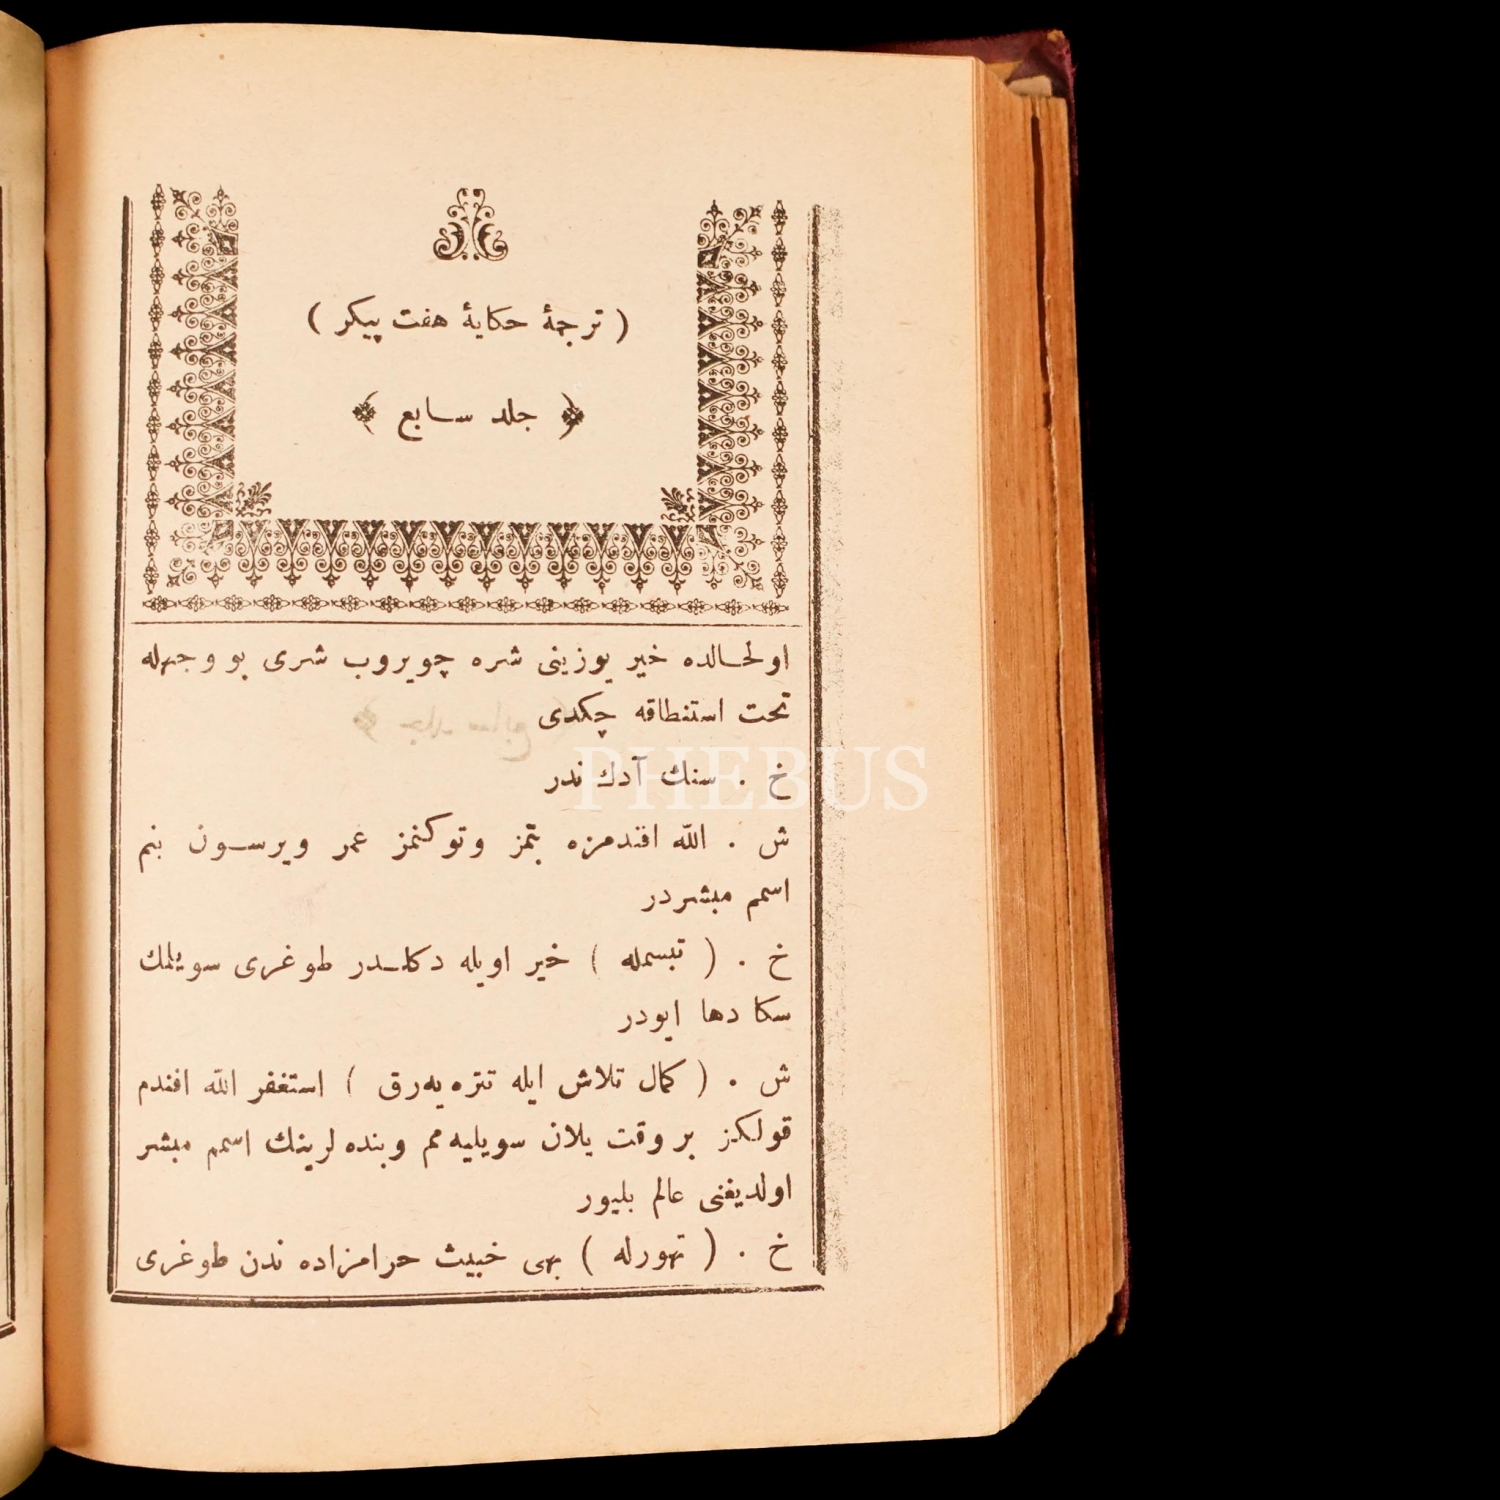 ( ترجمهٔ حكایهٔ هفت پیكر )
﴿ جلد سابع ﴾
اولحالده خیر یوزینی شره چویروب شری بو وجهله
تحت استنطاقه چكدی
خ . سنك آدك ندر
ش . الله افندمزه بتمز وتوكنمز عمر ویرسون بنم
اسمم مبشردر
خ . ( تبسمله ) خیر اویله دكلدر طوغری سویلمك
سكا دها ایودر
ش . ( كمال تلاش ایله تتره یه رق ) استغفر الله افندم
قولكز بر وقت یلان سویلیه مم وبنده لرینك اسمم مبشر
اولدیغنی عالم بلیور
خ . ( تهورله ) بهی خبیث حرامزاده ندن طوغری
PHEBUS